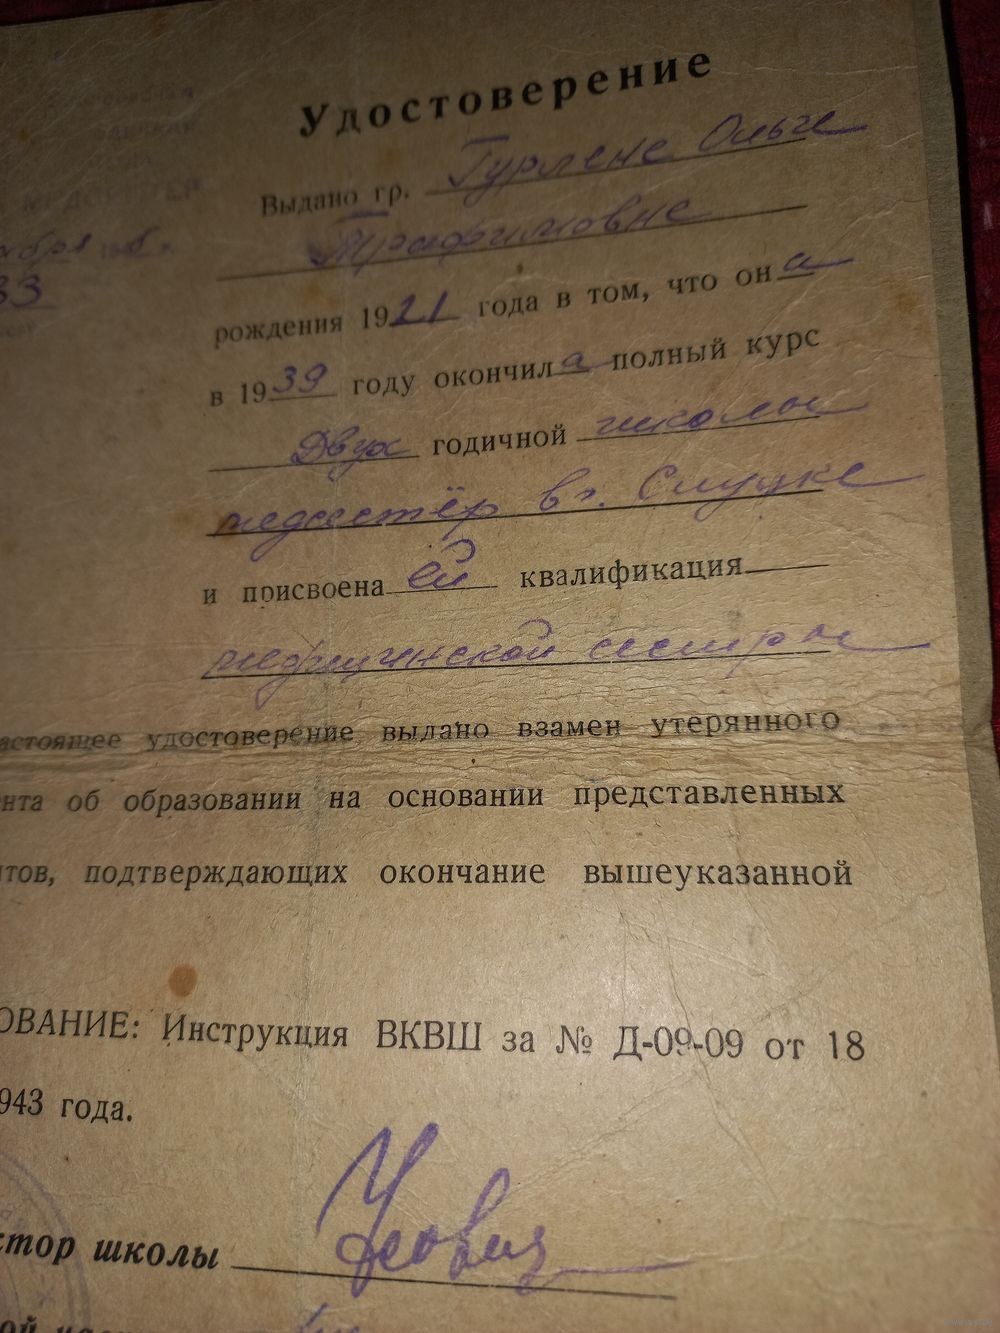 Удостоверение
Выдано гр. Гурлене Ольге
Трафимовне
рождения 1921 года в том, что она
в 1939 году окончила полный курс
Двух годичной школы
медсестёр в г. Слуцке
и присвоена ей квалификация
медицинской сестры
астоящее удостоверение выдано взамен утерянного
нта об образовании на основании представленных
тов, подтверждающих окончание вышеуказанной
ОВАНИЕ: Инструкция ВКВШ за № Д-09-09 от 18
943 года.
тор школы
33